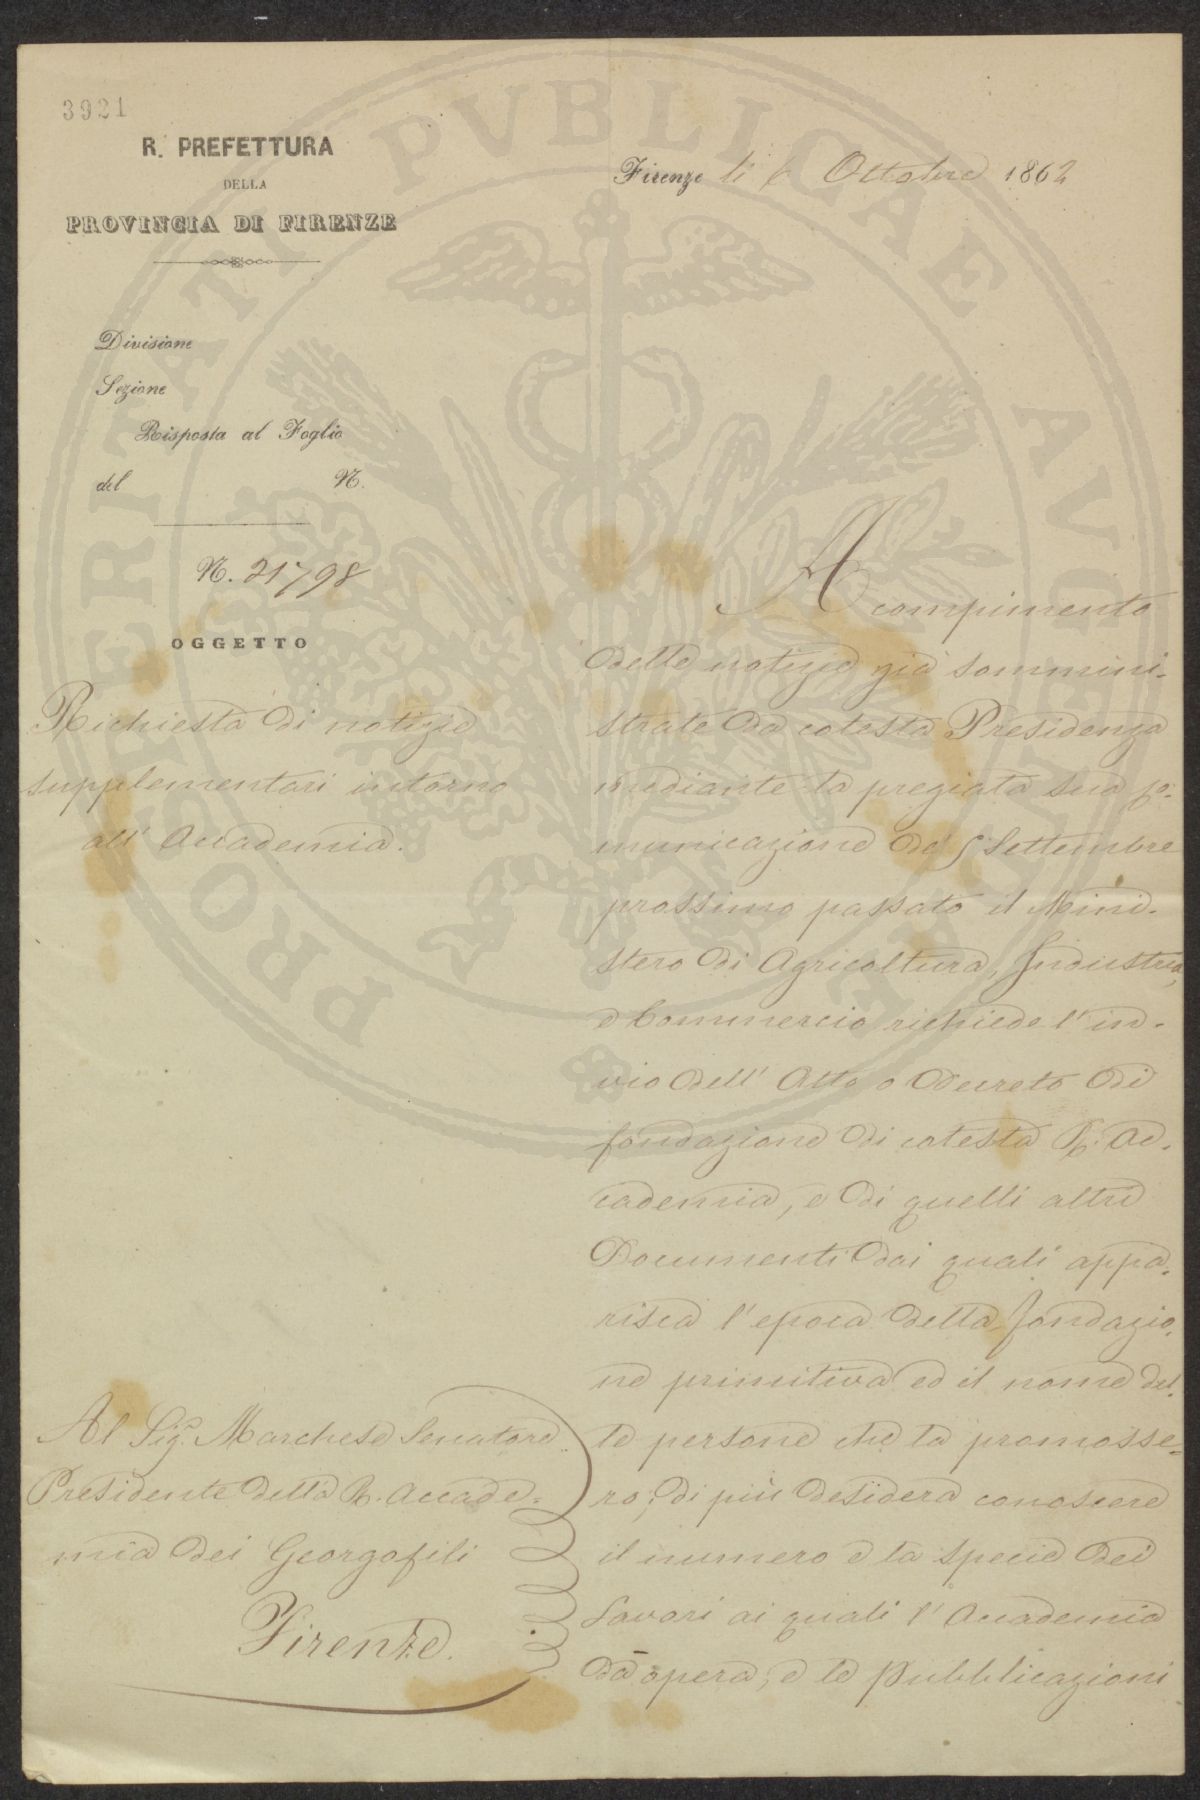 3921
R. PREFETTURA
DELLA
PROVINCIA DI FIRENZE
Firenze li 6 Ottobre 1862
Divisione
Sezione
Risposta al Foglio
del N.
N. 21798
OGGETTO
Richiesta di notizie
supplementari intorno
all' Accademia.
Al Sig.r Marchese Senatore
Presidente della R. Accade-
mia dei Georgofili
Firenze.
A compimento
delle notizie già sommini-
strate da cotesta Presidenza
mediante la pregiata sua co-
municazione de' 5 Settembre
prossimo passato il Mini-
stero di Agricoltura, Industria,
e Commercio richiede l'in-
vio dell' Atto o Decreto di
fondazione di cotesta R. Ac-
cademia, e di quelli altri
Documenti dai quali appa-
risca l'epoca della fondazio-
ne primitiva ed il nome del-
le persone che la promosse-
ro; di più desidera conoscere
il numero e la specie dei
lavori ai quali l' Accademia
dà opera, e le pubblicazioni
PROSPERITATI PVBLICAE AVGENDAE